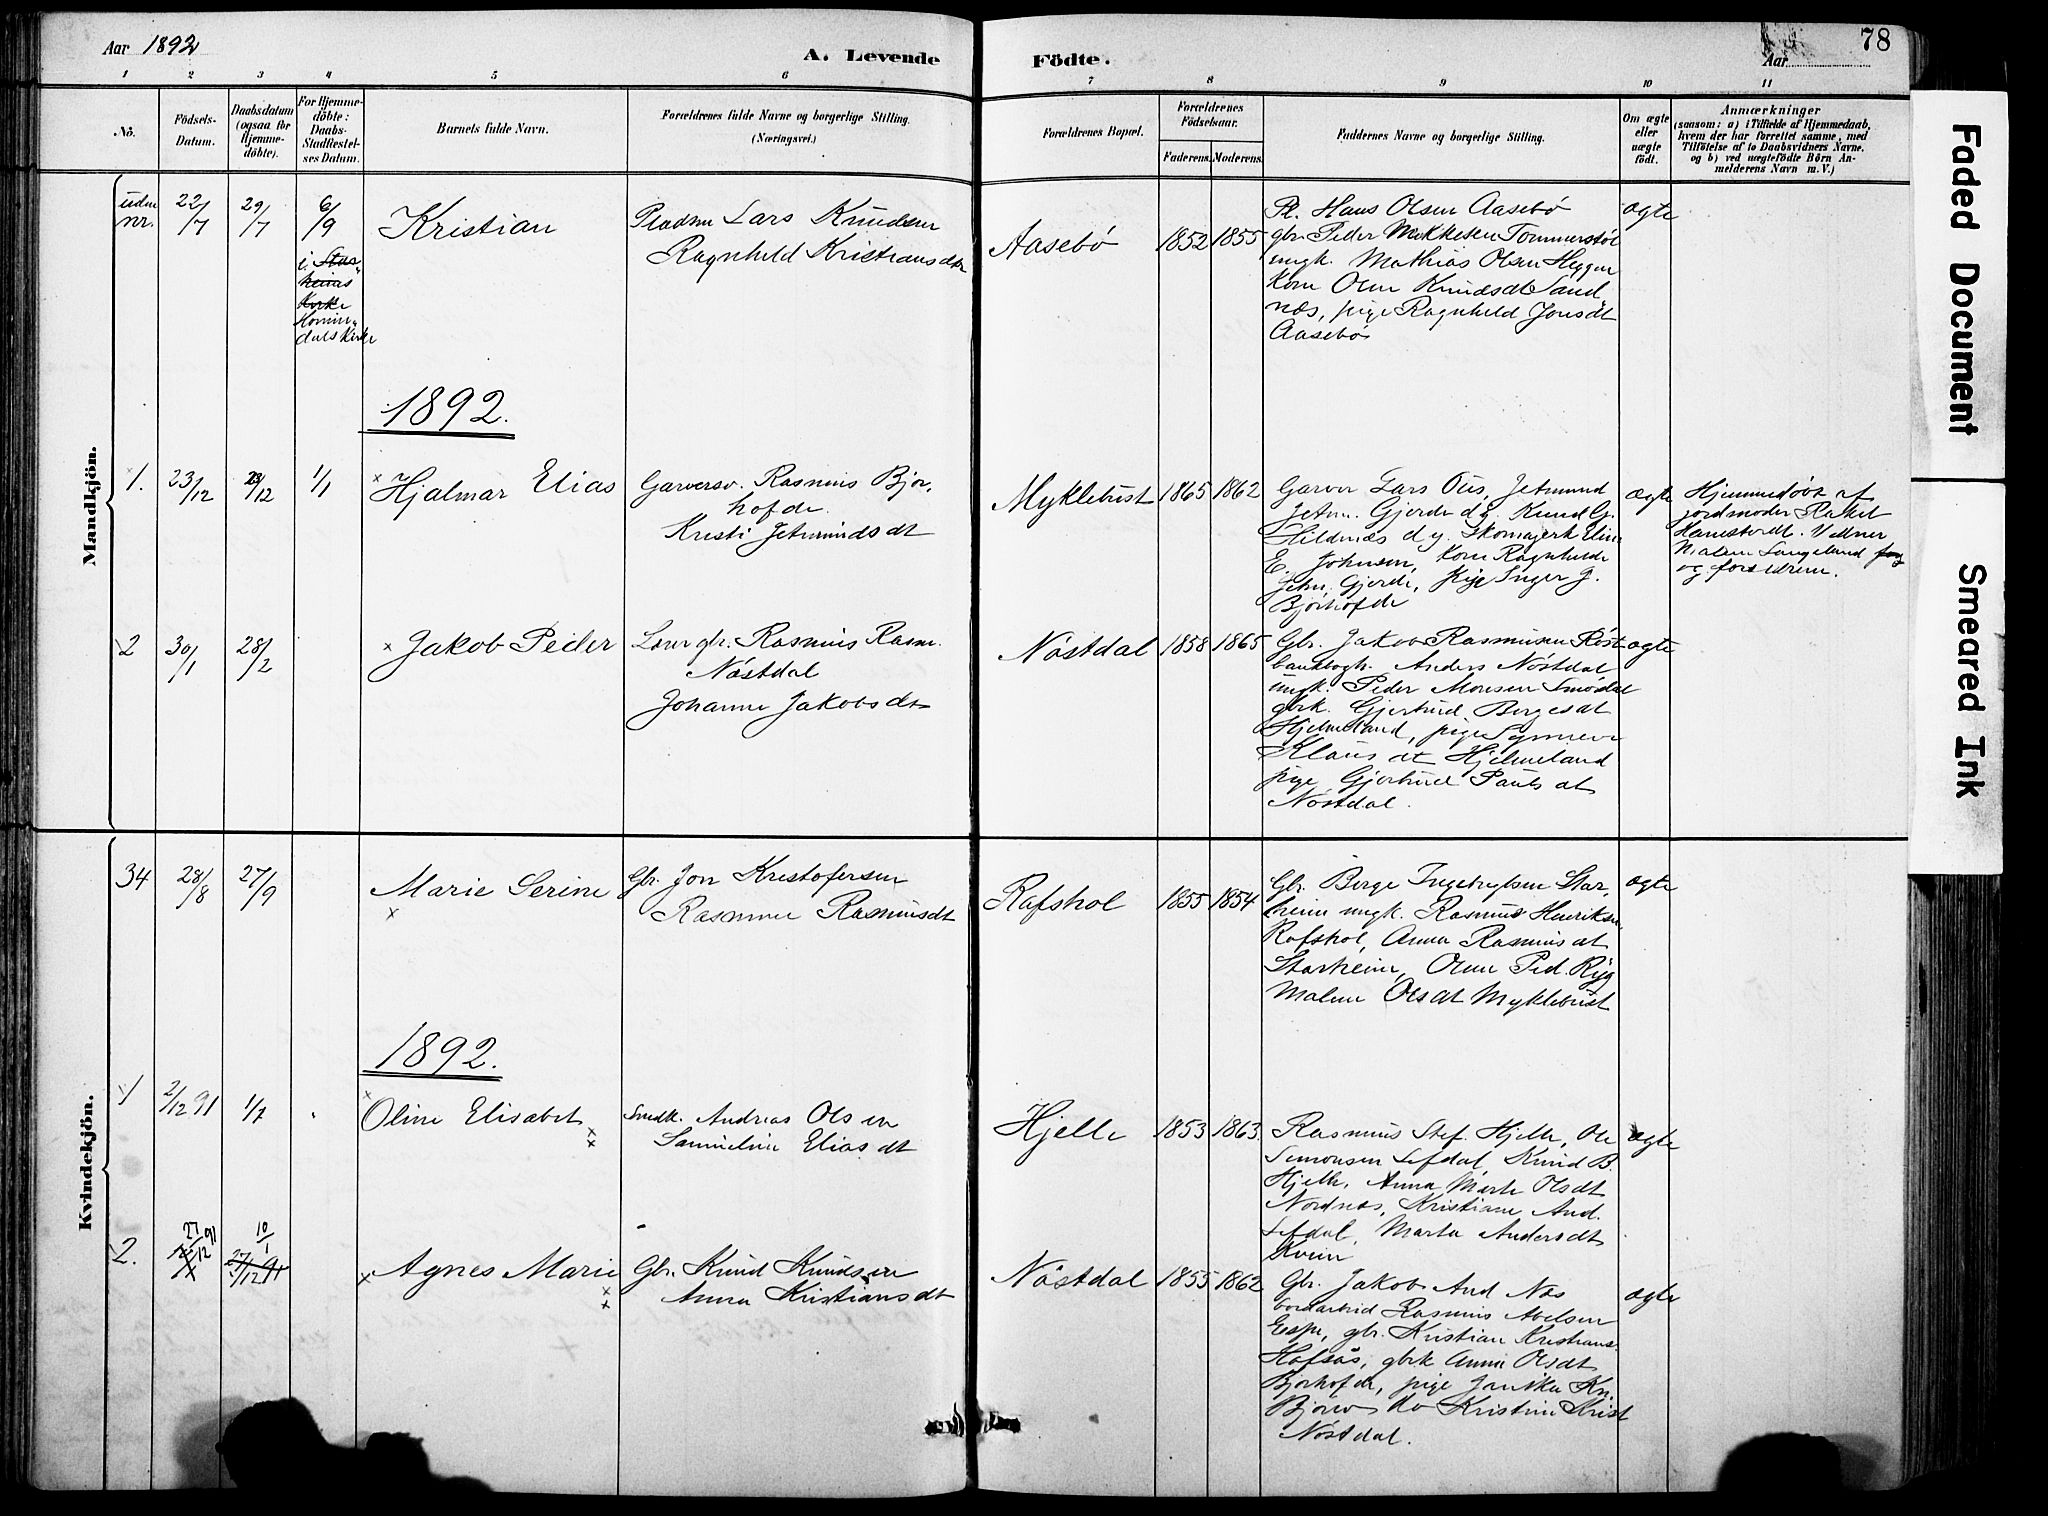 Aar 1892
A. Levende
Födte.
78
Aar
1 2 3 4 5 6 7 8 9 10 11
No.
Födsels-
Datum.
Daabsdatum
(ogsaa for
Hjemme-
döbte).
For Hjemme-
döbte:
Daabs-
Stadfæstel-
ses Datum.
Barnets fulde Navn.
Forældrenes fulde Navne og borgerlige Stilling.
(Næringsvei.)
Forældrenes Bopæl.
Forældrenes
Födselsaar.
Faderens. Moderens.
Faddernes Navne og borgerlige Stilling.
Om ægte
eller
uægte
födt.
Anmærkninger
(saasom: a) i Tilfælde af Hjemmedaab,
hvem der har forrettet samme, med
Tilföielse af to Daabsvidners Navne.
og b) ved uægtefödte Börn An-
melderens Navn m. V.)
Mandkjön.
uden
nr.
22/7
29/7
6/9
i
Kirke
Hornin-
dals Kirke
Kristian
Pladsm Lars Knudsen
Ragnhild Kristiansdtr
Aasebø
1852 1855
Pl. Hans Olsen Aasebø
gbr. Peder Mikkelsen Tommerstøl
ungk. Mathias Olsen Heggen
Kone Oline Knudsdt Sand
næs, pige Ragnhild Jonsdt
Aasebø
ægte
1892.
1.
23/12
29/12
1/1
Hjalmar Elias
Garversv. Rasmus Bjør,
hofde.
Kristi Jetmundsdt
Myklebust
1865 1862
Garver Lars Otis, Jetmund
Jetm. Gjerde d.y. Knud G.
Hildnæs d.y. Skomagerk Eline
E. Johnsen, Kone Ragnhilde
Jetm. Gjerde, Pige Inger J.
Bjørhofde
ægte
Hjemmedøbt af
jordmoder Rakel
Vidner
Langeland
og forældrene.
2
30/1
28/2
Jakob Peder
gbr. Rasmus Rasm.
Nøstdal
Johanne Jakobsdt
Nøstdal
1858 1865
Gbr. Jakob Rasmusen Røst
Anders Nøstdal
ungk. Peder Monsen Smørdal
gbrk. Gjertrud Børgesdt
Hjelmeland, pige Synneve
Klausdt Hjelmeland
pige Gjertrud Paulsdt
Nøstdal.
ægte
Kvindekjön.
34
28/8
27/9
Marie Serine
Gbr. Jon Kristofersen
Rasmine Rasmusdt
Rafshol
1855 1854
Gbr. Børge Ingebrigtsen Star,
heim ungk. Rasmus Henriksen
Rafshol, Anna Rasmusdt
Starheim, Oline Ped. Ryg
Malene Olsdt Myklebust
ægte
1892.
1
2/12 91
1/7
Oline Elisabet
Smedk. Andreas Olsen
Samueline Eliasdt
Hjelle
1853 1863.
Rasmus Stef. Hjelle, Ole
Simonsen Lefdal, Knud B.
Hjelle, Anna Marte Olsdt
Nordnæs, Kristiane And.
Lefdal, Marta Andersdt
Kvein
ægte
2.
27/12 91
10/1
27/12 91
Agnes Marie
Gbr. Knud Knudsen
Anna Kristiansdt
Nøstdal
1855 1862
Gbr. Jakob And Næs
Rasmus Abelsen
Espe, gbr. Kristian Kristians.
Hafsås, gbrk Anne Olsdt
Bjørhofde, pige Janika Kn.
Bjørlo do Kristine Krist
Nøstdal.
ægte
Faded Document
Smeared Ink